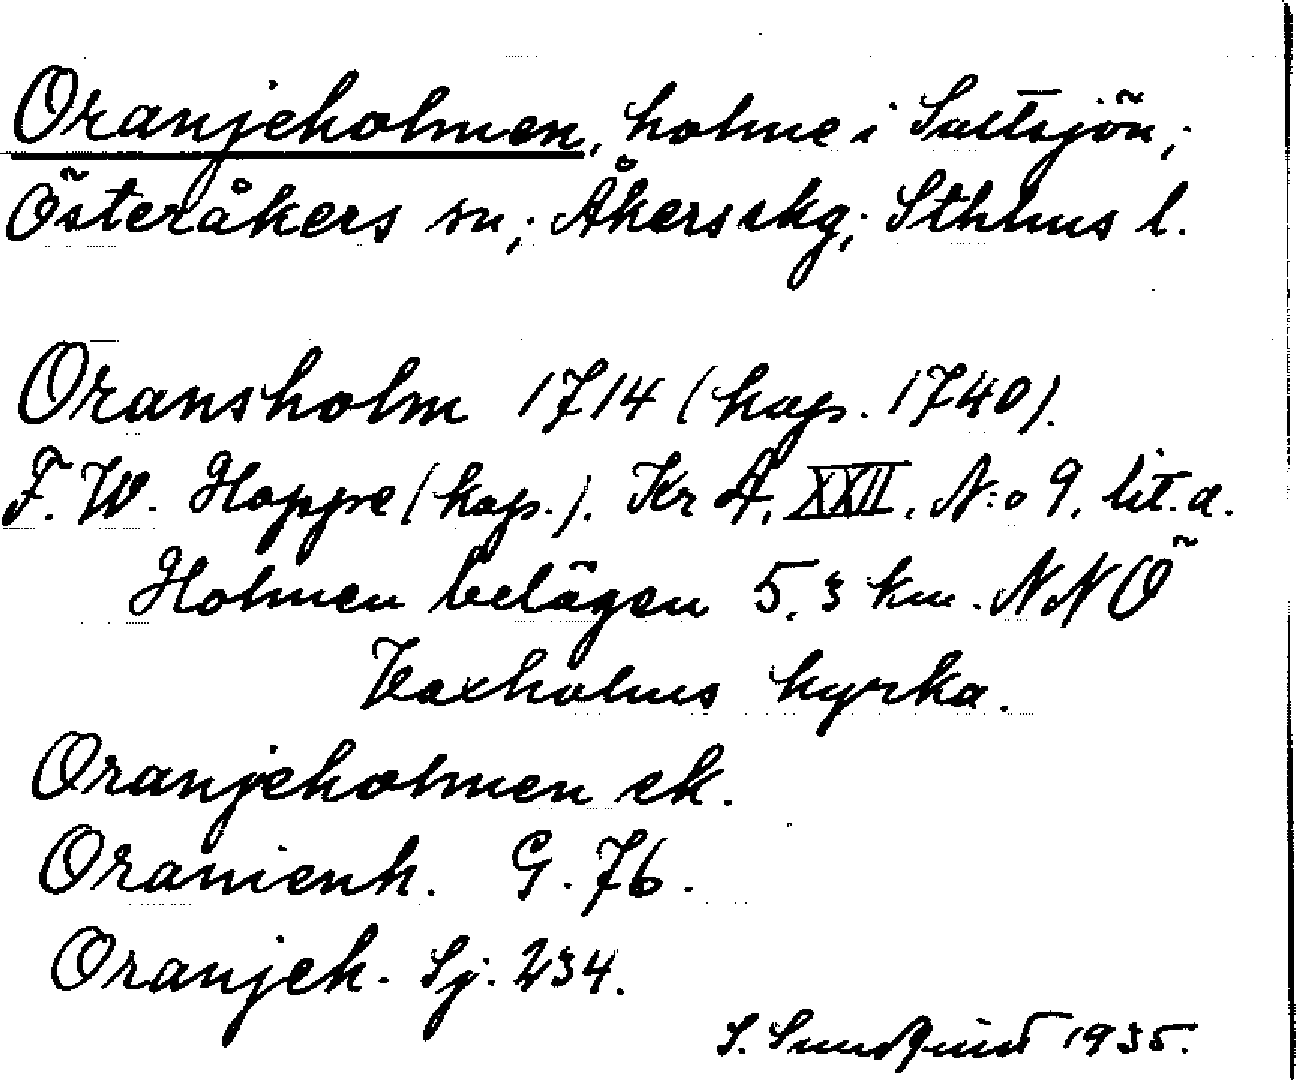 Oranjeholmen, holme i Saltsjön;
Österåkers sn; Åkers skg; Sthlms l.
Oransholm 1714 (kop. 1740).
F. W. Hoppe (kop.). Kr A, XXII. N:o 9. lit. a.
Holmen belägen 5,3 km. NNÖ
Vaxholms kyrka.
Oranjeholmen ek.
Oranienh. G. 76.
Oranjeh. Sj. 234.
S. Sundquist 1935.